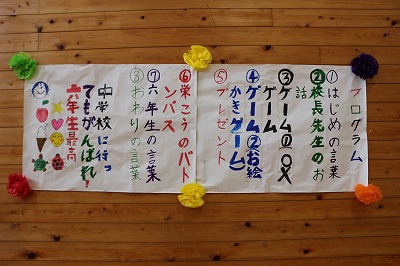 プログラム
①はじめの言葉
②校長先生のお
話
③ゲーム①〇✕
ゲーム
④ゲーム②お絵
かきゲーム)
⑤プレゼント
⑥栄こうのバト
ンパス
⑦六年生の言葉
⑧おわりの言葉
中学校に行っ
てもがんばれ!
六年生最高